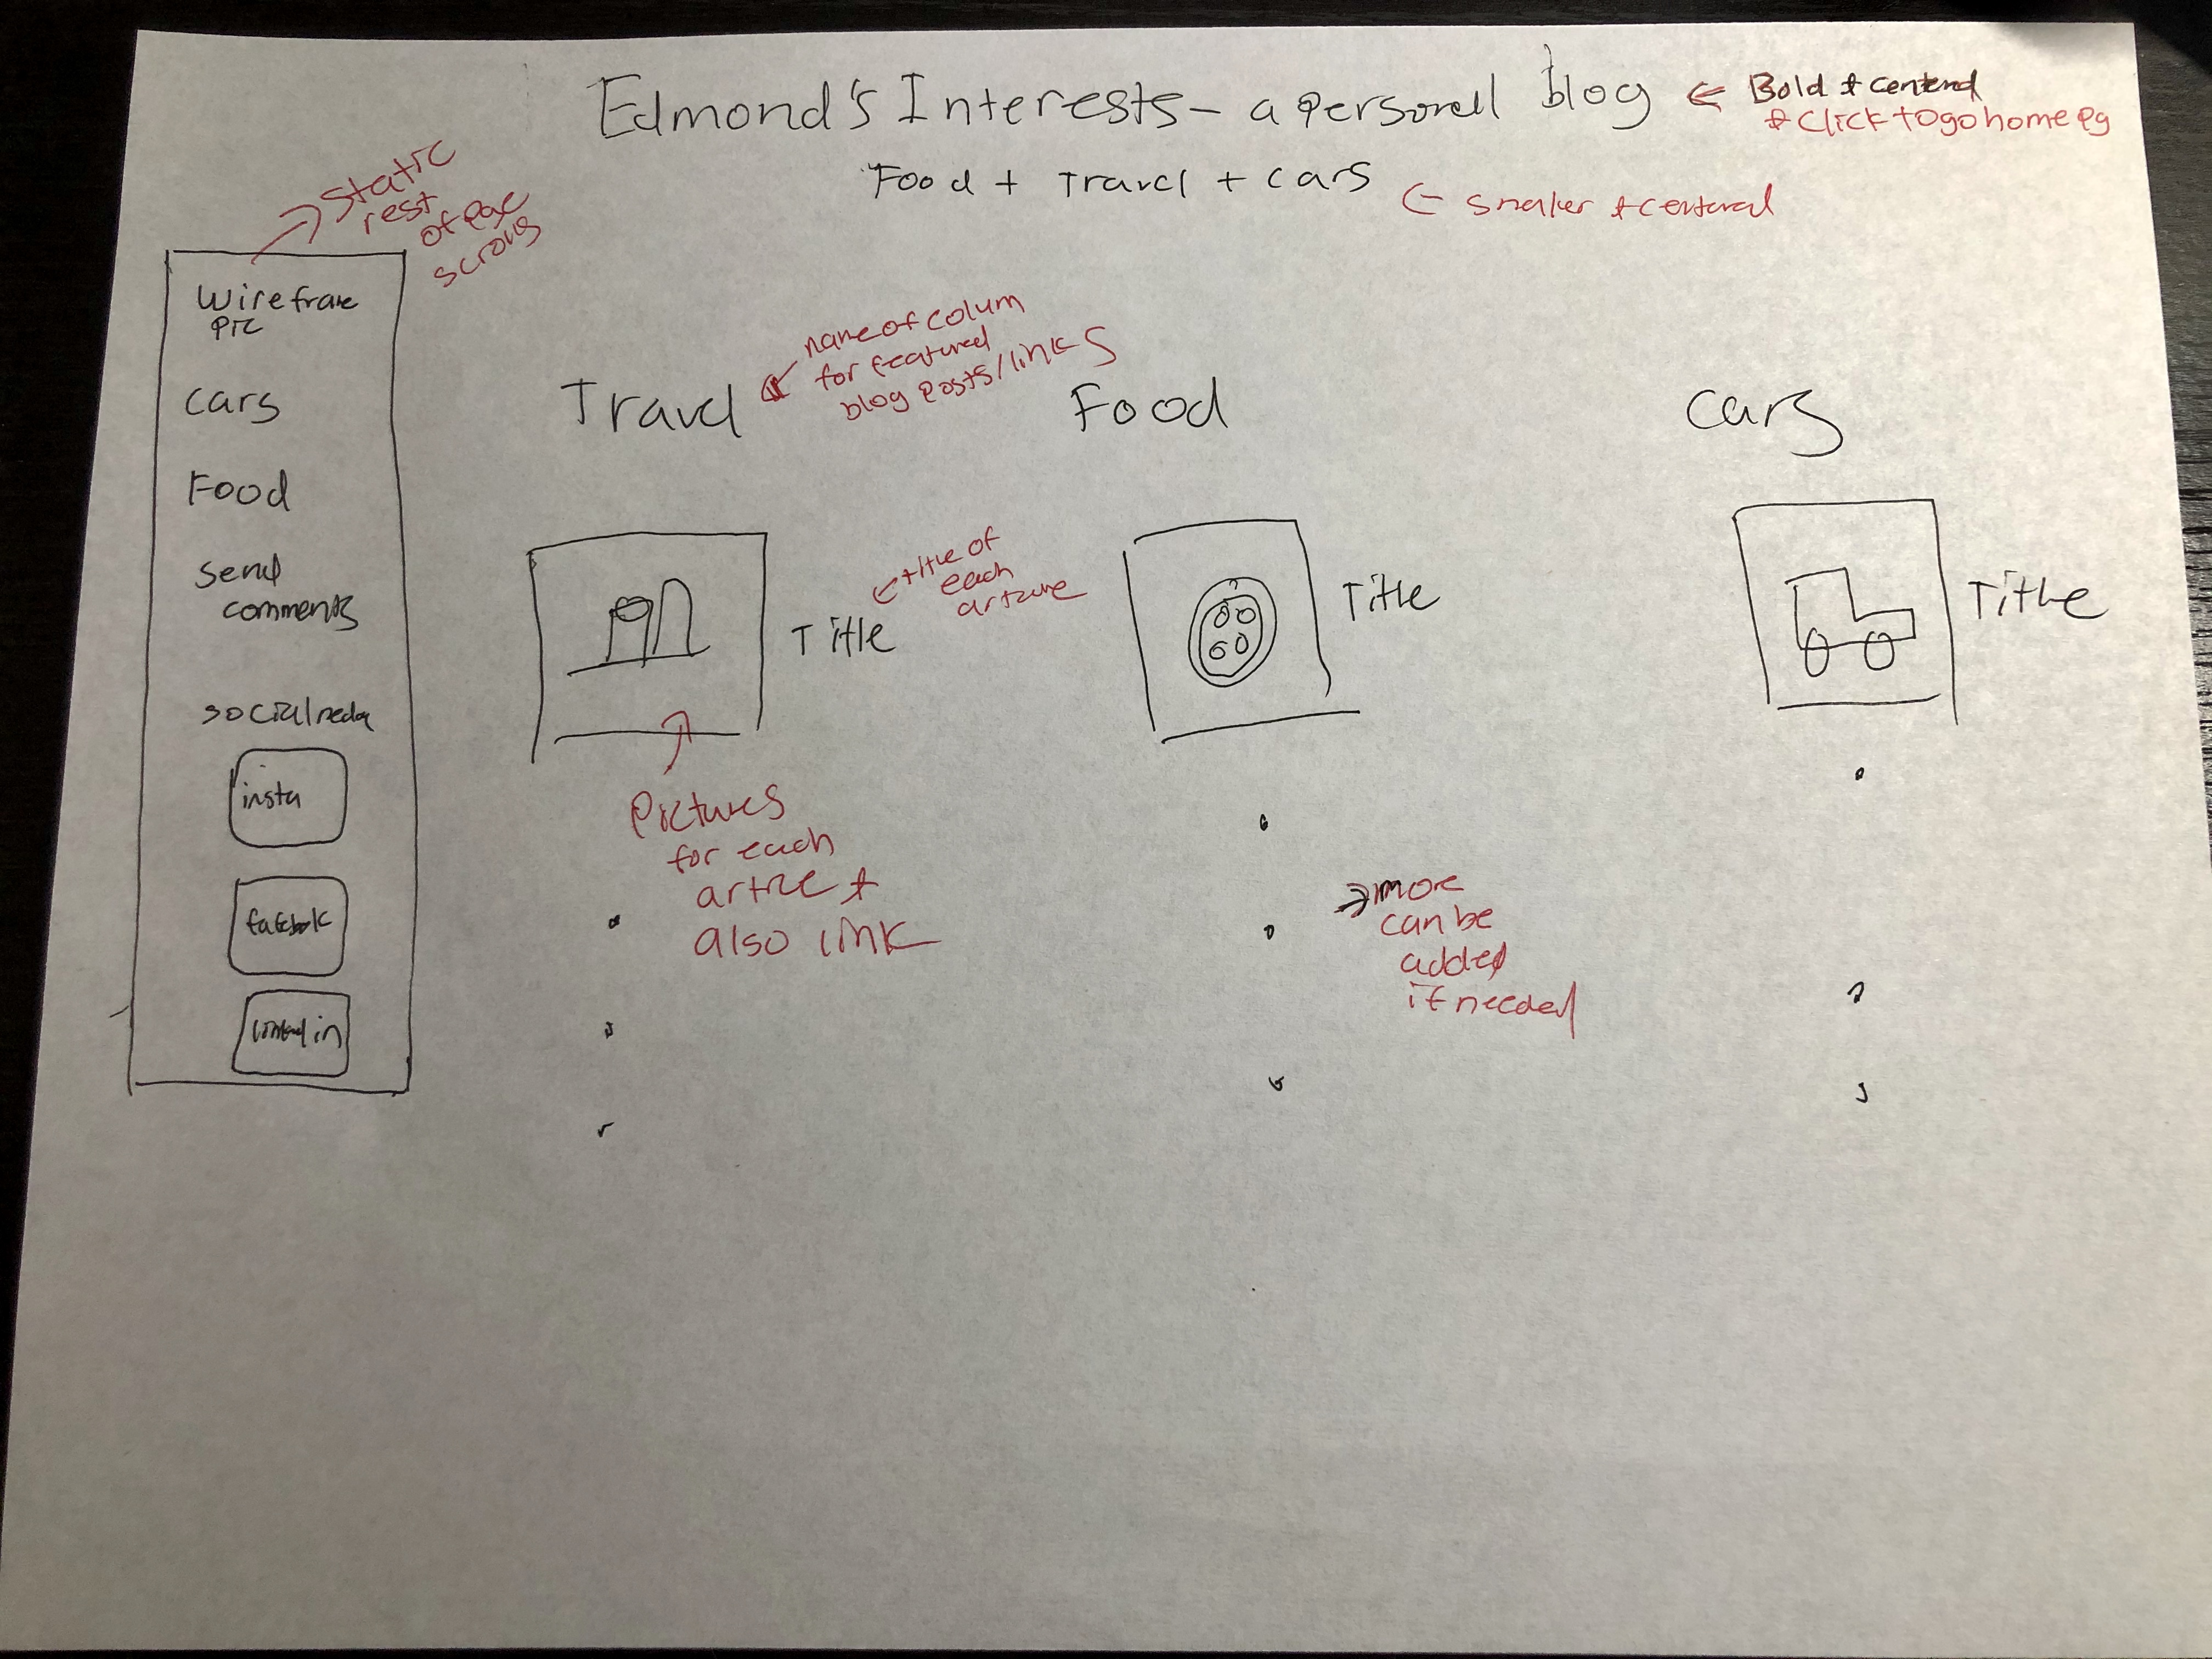 Edmond's Interests - a personal blog ← Bold & centered
& Click to go home pg
Food + Travel + cars
← smaller & centered
→ static
rest
of page
scrolls
wireframe
pic
cars
Food
send
comments
social media
insta
facebook
linked in
Travel
← name of colum
for featured
blog posts/links
Food
cars
Title
← title of
each
article
Title
Title
Pictures
for each
article &
also link
→ more
can be
added
if needed